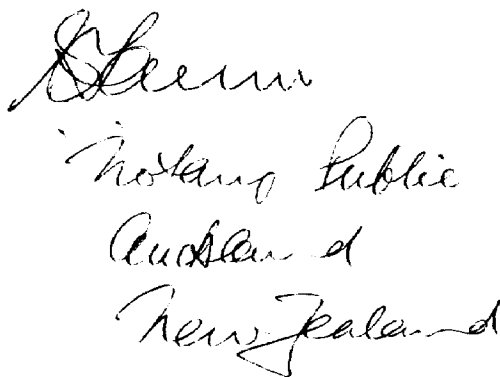 Notary Public
Auckland
New Zealand